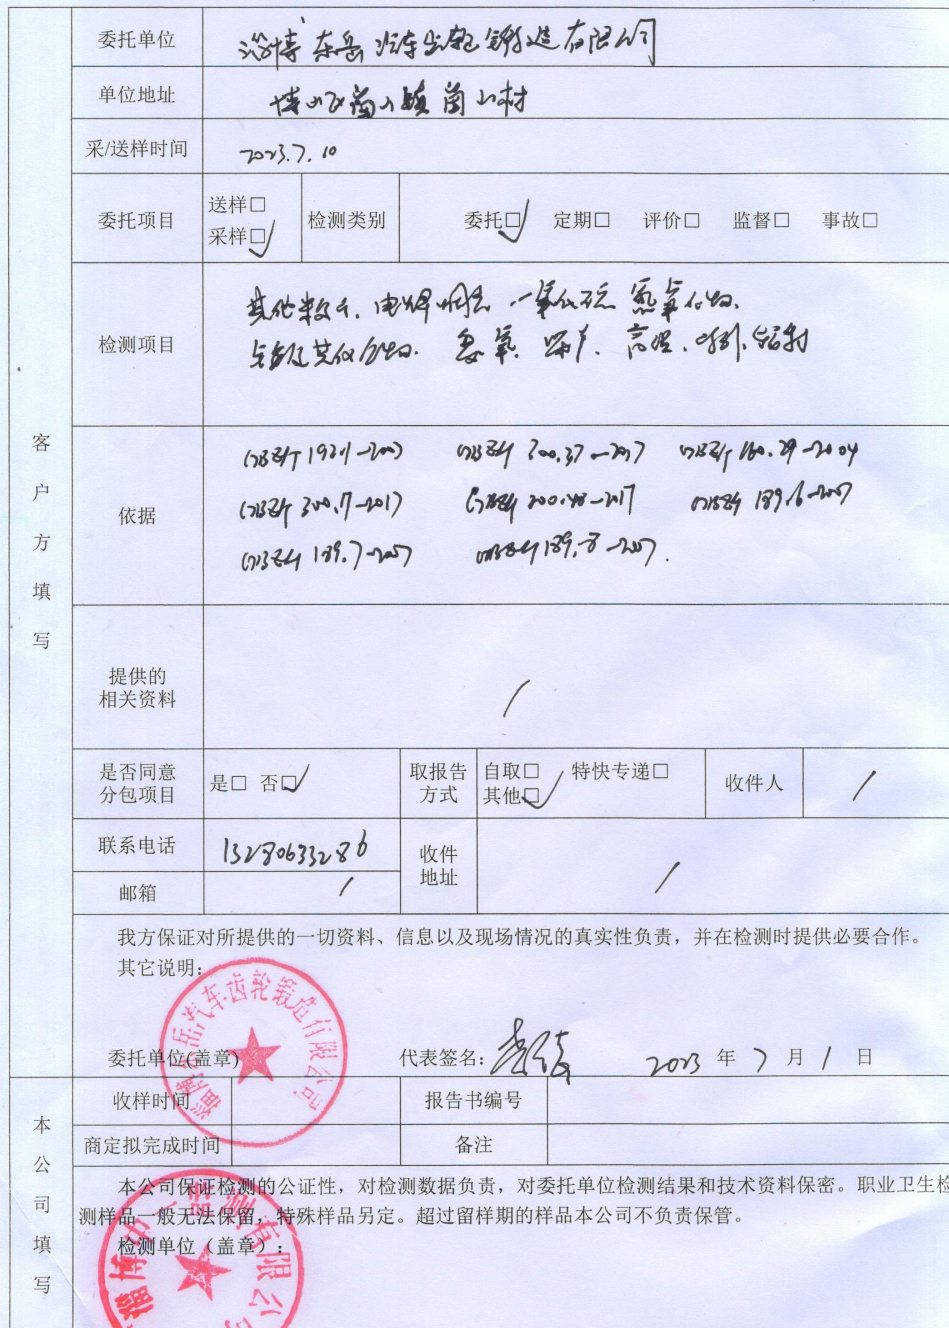 委托单位 淄博东岳汽车齿轮锻造有限公司
单位地址 博山区南山镇南山村
采/送样时间 2023.7.10
委托项目 送样□ 采样□✓ 检测类别 委托□✓ 定期□ 评价□ 监督□ 事故□
检测项目 其他粉尘、电焊烟尘、一氧化碳、氮氧化物、
锰及其化合物、臭氧、噪声、高温、辐射
客户方填写
依据 GBZ/T 192.1-2007 GBZ/T 300.37-2017 GBZ/T 160.29-2004
GBZ/T 300.17-2017 GBZ/T 300.48-2017 GBZ/T 189.6-2007
GBZ/T 189.7-2007 GBZ/T 189.8-2007.
提供的
相关资料 /
是否同意
分包项目 是□ 否□✓ 取报告
方式 自取□ 特快专递□
其他□✓ 收件人 /
联系电话 13280633286 收件
地址 /
邮箱 /
我方保证对所提供的一切资料、信息以及现场情况的真实性负责，并在检测时提供必要合作。
其它说明：
淄博东岳汽车齿轮锻造有限公司
委托单位(盖章) 代表签名： 2023 年 7 月 1 日
本公司填写
收样时间 报告书编号
商定拟完成时间 备注
本公司保证检测的公证性，对检测数据负责，对委托单位检测结果和技术资料保密。职业卫生检
测样品一般无法保留，特殊样品另定。超过留样期的样品本公司不负责保管。
检测单位（盖章）：
淄博中 检测有限公司